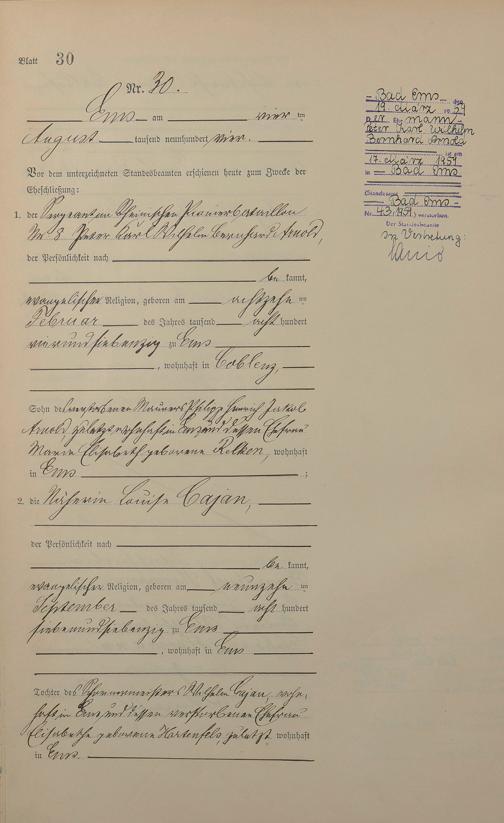 Blatt 30
Nr. 30.
Ems am vierten
August tausend neunhundert vier.
Vor dem unterzeichneten Standesbeamten erschienen heute zum Zwecke der
Eheschließung:
1. der Sergeant im Rheinischen Pionierbataillon
Nr 8 Peter Karl Wilhelm Bernhard Arnold,
der Persönlichkeit nach
be kannt,
evangelischer Religion, geboren am achtzehn ten
Februar des Jahres tausend acht hundert
vierundsiebenzig zu Ems
, wohnhaft in Coblenz,
Sohn des verstorbenen Maurers Philipp Heinrich Jakob
Arnold, zuletzt wohnhaft in Ems und dessen Ehefrau
Marie Elisabeth geborene, wohnhaft
in Ems ;
2. die Näherin Louise Cajan,
der Persönlichkeit nach
be kannt,
evangelischer Religion, geboren am neunzehn ten
September des Jahres tausend acht hundert
siebenundsiebenzig zu Ems
, wohnhaft in Ems
Tochter des Wilhelm Cajan, wohn-
haft in Ems und dessen verstorbenen Ehefrau
Elisabethe geborene, zuletzt wohnhaft
in Ems.
Bad Ems, den
19. März 1959
Der Ehemann
Peter Karl Wilhelm
Bernhard Arnold
ist am
17. März 1959
in Bad Ems
Standesamt
Bad Ems
Nr. 43/1959 verstorben.
Der Standesbeamte
In Vertretung: